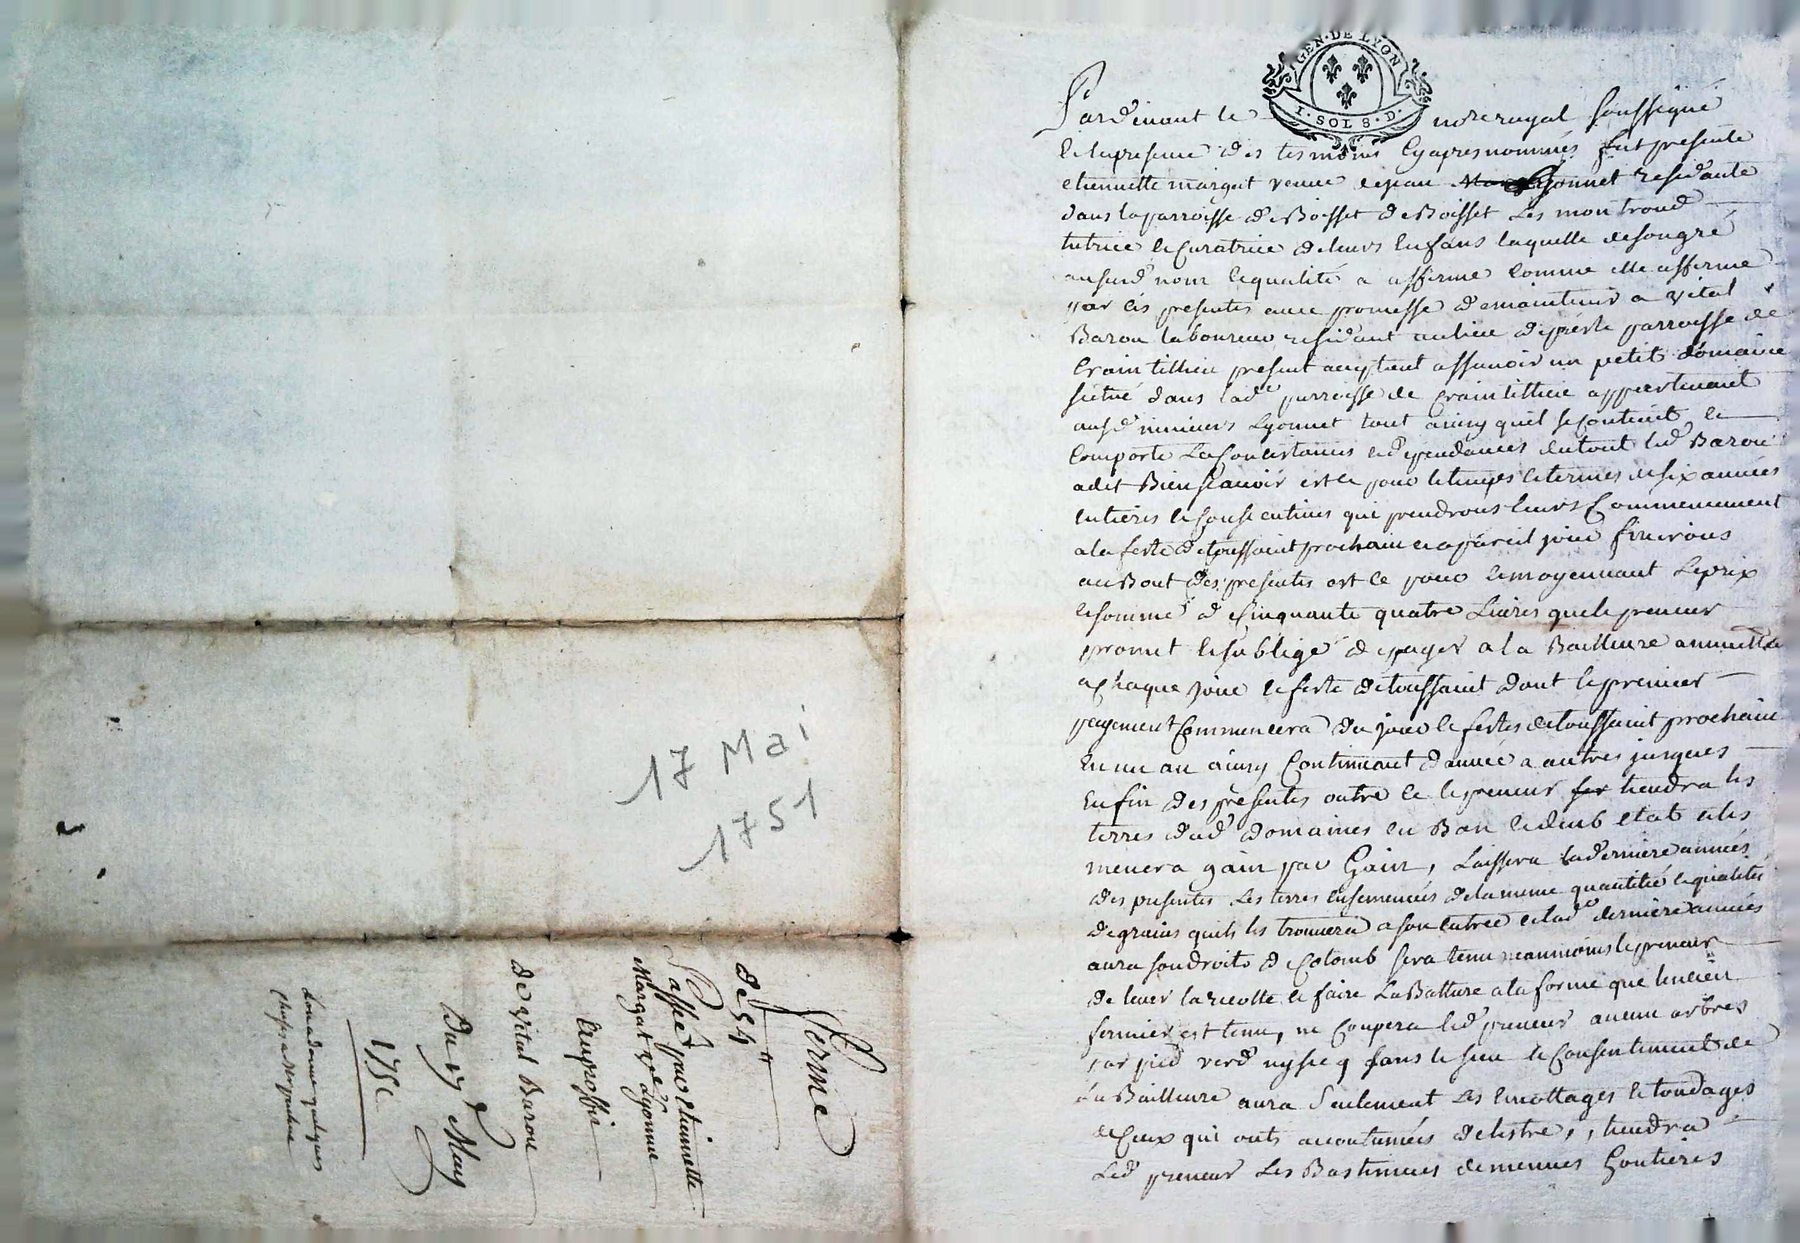 17 Mai
1751
ferme
de 54 ₶
Passée par etiennette
Margat vve Lyonne
au proffit
de vital Barou
Du 17 May
175
GEN·DE LYON
1·SOL 8·D
Pardevant le notre royal soussigné
et en presence des tesmoins cy apres nommés fut presente
etiennette margat veuve de jean Lyonnet residante
dans la parroisse de Boisset de Boisset Les montrond
tutrice et Curatrice de leurs Enfans laquelle de son gré
audt nom et qualité a afferme Comme elle afferme
par ces presentes avec promesse de maintenir a vital
Barou laboureur residant au lieu de parroisse de
Craintillieu present acceptant assavoir un petit domaine
situé dans lade parroisse de Craintillieu appartenant
ausd mineurs Lyonnet tout ainsy quil se Contient et
Comporte Ses Consistances et dependances du tout led Barou
a dit Bien scavoir est ce pour le temps et termes de six années
Entieres et Consecutives qui prendrons leurs Commencement
a la feste de toussaint prochain et a pareil jour finirons
au Bout des presentes est ce pour et moyennant Le prix
et somme de Cinquante quatre Livres que le preneur
promet et soblige de payer a la Bailleure annuellt
a Chaque jour et feste de toussaint dont le premier
payement Commencera du jour et festes de toussaint prochain
En un an ainsy Continuant dannée a autres jusques
En fin des presentes outre ce le preneur tiendra les
terres dud domaines En Bon et deub etat et les
menera gain par Gain, Laissera lad derniere années
des presentes Les terres Ensemencés de la meme quantitté et qualités
de grains quils les trouvera a son Entrée et lade derniere années
aura son droit de Colomb sera tenu neanmoins le preneur
de lever la recolte et faire La Batture a la forme que lencien
fermier est tenu, ne Coupera led preneur aucun arbres
par pied verd ny secq sans le sceu et Consentiment de
la Bailleure aura Seulement Les Emottages et tondages
de Ceux qui onts accoutumées destre, tiendra
Led preneur Les Bastiments de menues Goutieres